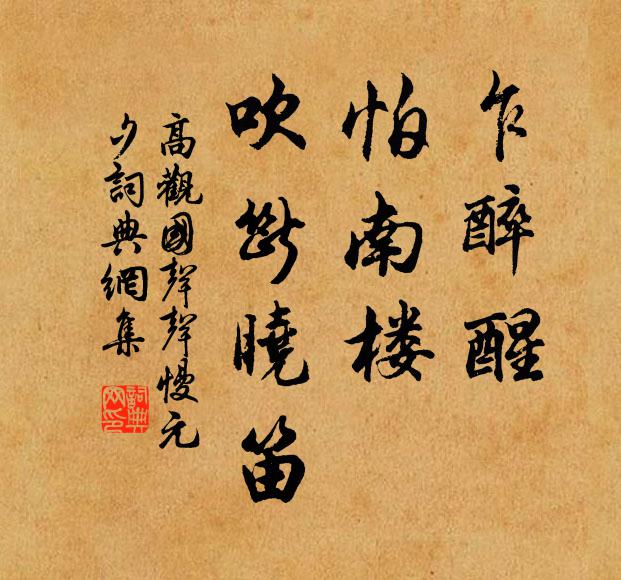 乍醉醒
怕南楼
吹断曉笛
高觀國聲聲慢元
夕詞典網集
詞典
网印